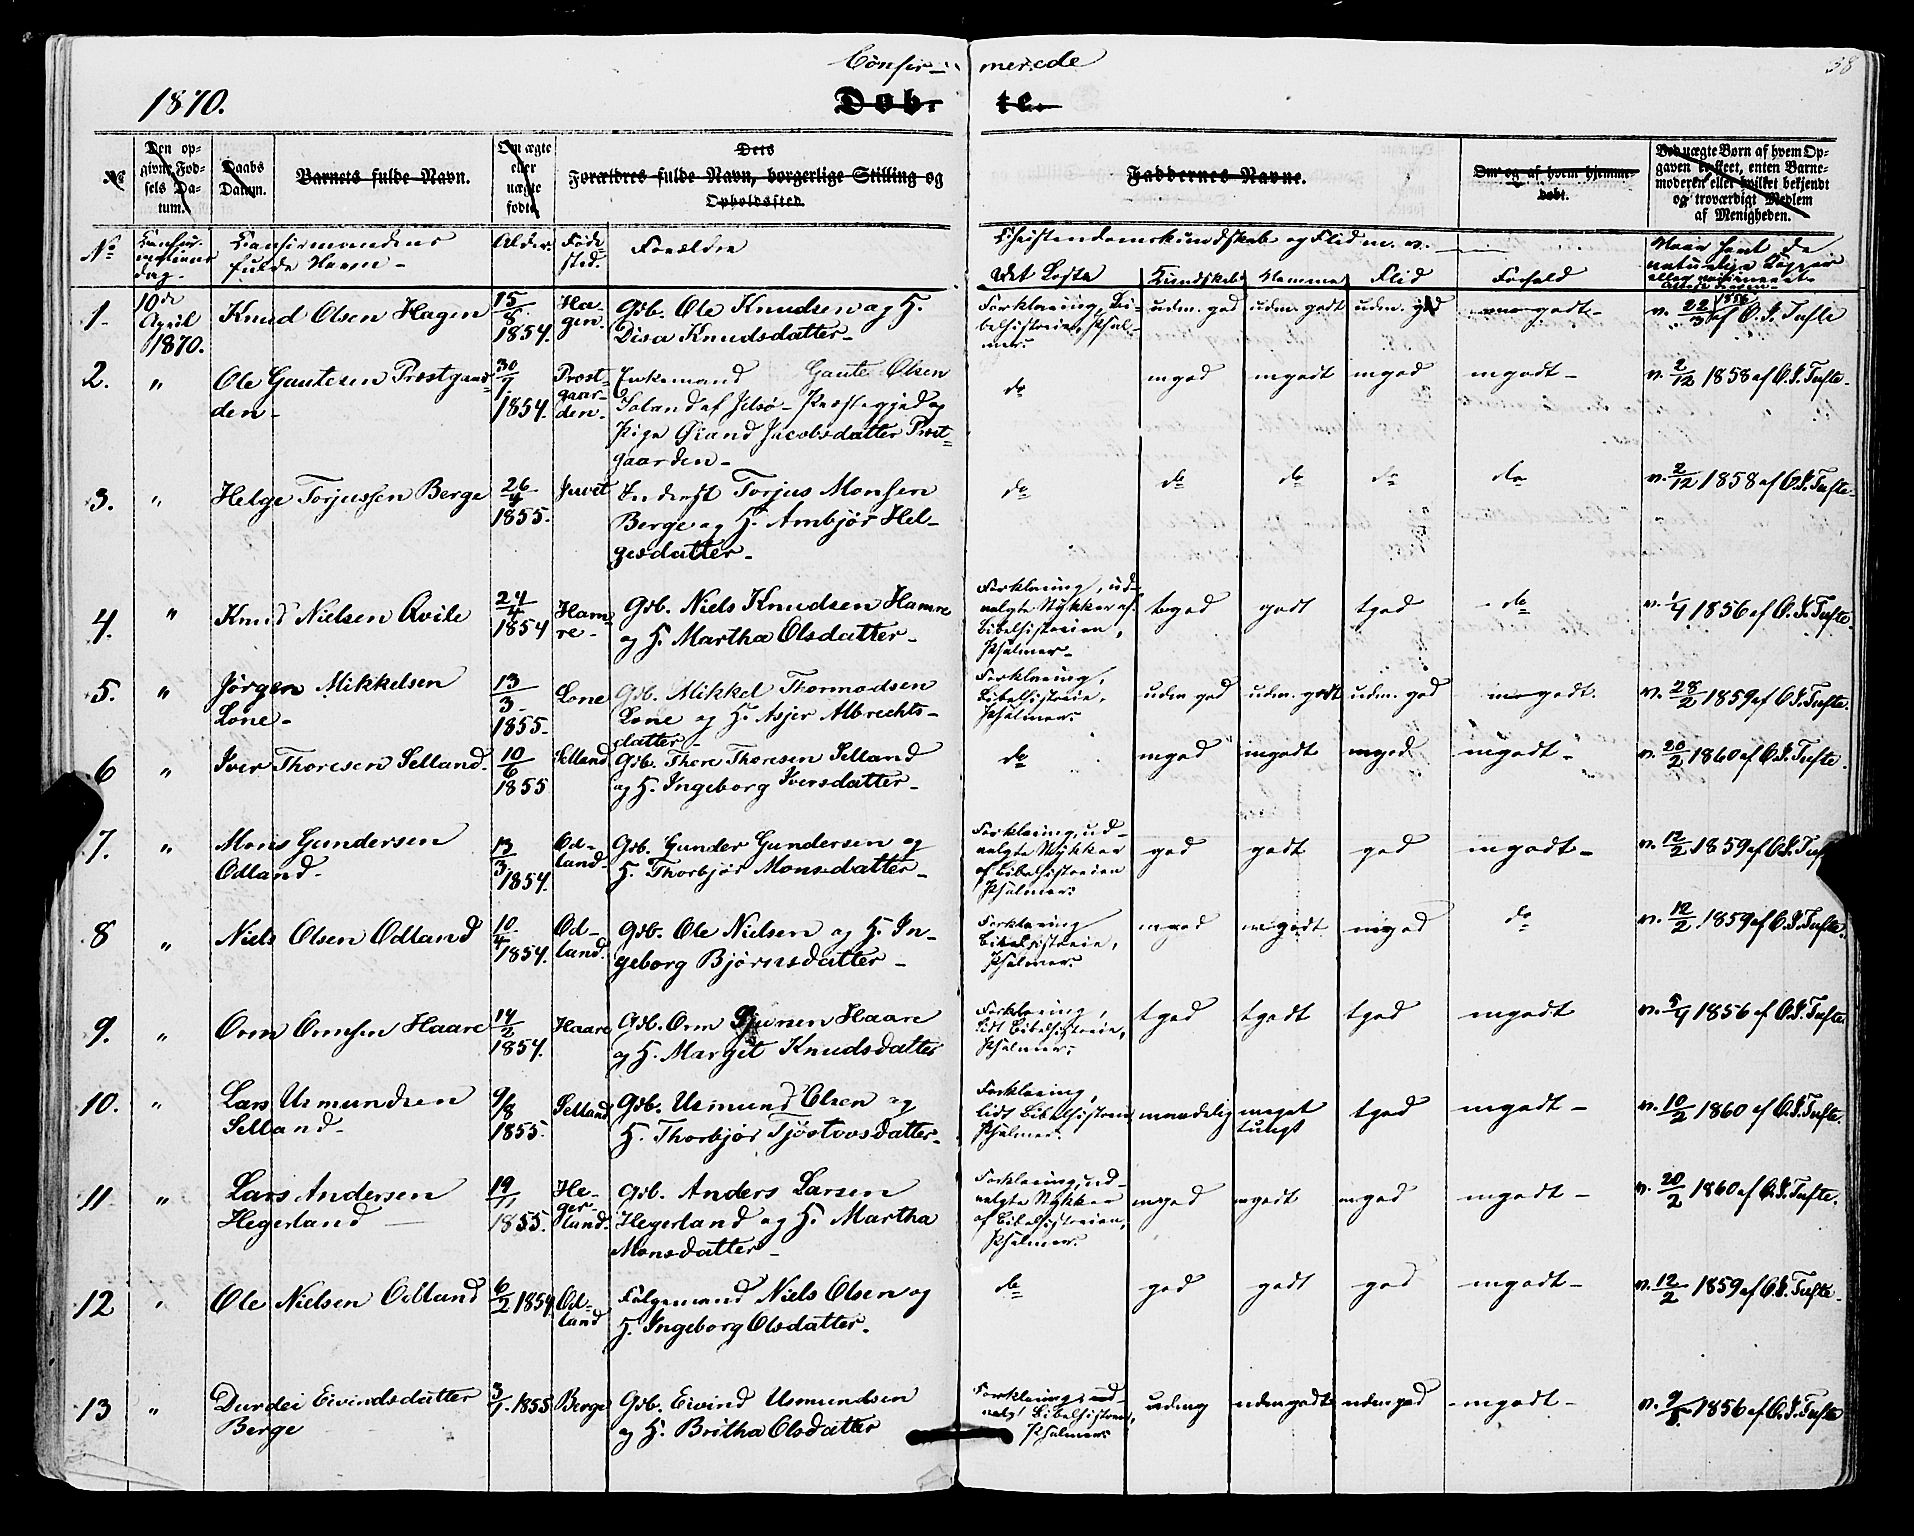 Confir- merede
38
1870.
Døb- te.
№
Den op-
givne Fød-
sels Da-
tum.
Daabs
Datum.
Barnets fulde Navn.
Om ægte
eller
uægte
født.
Dets
Forældres fulde Navn, borgerlige Stilling og
Opholdssted.
Faddernes Navne.
Om og af hvem hjemme-
døbt.
Ved uægte Børn af hvem Op-
gaven er skeet, enten Barne-
moderen eller hvilket bekjendt
og troværdigt Medlem
af Menigheden.
No
Confir-
mations
dag-
Confirmandens
fulde Navn-
Alder.
Føde
sted.
Forældre
Christendomskundskab og Flid m. v.
Det Læste
Kundskab
Nemme
Flid
Forhold
Naar havt de
naturlige Kopper
eller vaccineret
1.
10de
April
1870.
Knud Olsen Hagen
15/8
1854.
Ha-
gen.
Gdb. Ole Knudsen og H.
Disa Knudsdatter-
Forklaring, Bi-
belhistorien, Psal-
mer.
udm. god
udm. godt
udm. god
godt-
v. 22/3 1856 af O. S. Tufte
2.
"
Ole Gautesen Præstgaar-
den-
30/7
1854.
Præst-
gaar-
den-
Enkemand Gaute Olsen
Soland af Jelsø- Præstegjeld og
Pige Øiand Jacobsdatter Præst-
gaarden-
do
mgod
mgodt
mgod
mgodt-
v. 2/12 1858 af O. S. Tufte.
3.
"
Helge Torjussen Berge
26/4
1855.
Juvet
Inderst Torjus Monsen
Berge og H. Ambjør Hel-
gesdatter-
do
do
do
do
do
v. 2/12 1858 af O. S. Tufte.
4.
"
Knud Nielsen Qvile
24/4
1854
Ham-
re-
Gdb. Niels Knudsen Hamre
og H. Martha Olsdatter-
Forklaring, ud-
valgte Stykker af
Bibelhistorien,
Psalmer-
tgod
godt
tgod
do
v. 1/4 1856 af O. S. Tufte.
5.
"
Jørgen Mikkelsen
Lone-
13/3
1855.
Lone
Gdb. Mikkel Thormodsen
Lone og H. Asjer Albrechts-
datter-
Forklaring,
Bibelhistorie,
Psalmer.
udm god
udm. godt
udm. god
mgodt.
v. 28/2 1859 af O. S. Tufte.
6
"
Iver Thoresen Selland.
10/6
1855
Selland
Gdb. Thore Thoresen Selland
og H. Ingeborg Iversdatter-
do
mgod
mgodt
mgod
mgodt-
v. 20/2 1860 af O. S. Tufte.
7.
"
Mons Gundersen
Odland.
13/3
1854.
Od-
land.
Gdb. Gunder Gundersen og
H. Thorbjør Monsdatter-
Forklaring, ud-
valgte Stykker
af Bibelhistorien
Psalmer.
god
godt
god
mgodt-
v. 12/2 1859 af O. S. Tuf
8
"
Niels Olsen Odland
10/4
1854.
Od-
land.
Gdb. Ole Nielsen og H. In-
geborg Bjørnsdatter-
Forklaring
Bibelhistorie,
Psalmer.
mgod
mgodt
mgod
do
v. 12/2 1859 af O. S. Tufte.
9.
"
Orm Ormsen Haare
14/2
1854.
Haare
Gdb. Orm Haare
og H. Margit Knudsdatter
Forklaring,
lidt Bibelhistorie,
Psalmer.
tgod
tgodt
tgod
mgodt
v. 5/4 1856 af O. S. Tufte.
10.
"
Lars Usmundsen
Selland-
9/8
1855.
Selland
Gdb. Usmund Olsen og
H. Thorbjør Tjøstovsdatter-
Forklaring,
lidt Bibelhistorie
Psalmer.
maadelig
meget
tungt
tgod
mgodt-
v. 10/2 1860 af O. S. Tufte.
11
"
Lars Andersen
Hegerland-
19/1
1855.
He-
ger-
land.
Gdb. Anders Larsen
Hegerland og H. Martha
Monsdatter-
Forklaring, ud-
valgte Stykker
af Bibelhistorien,
Psalmer.
mgod
mgodt
mgod
mgodt-
v. 20/2 1860 af O. S. Tufte.
12
"
Ole Nielsen Odland
6/2 1854.
Od-
land
Følgemand Niels Olsen og
H. Ingeborg Olsdatter.
do
god
godt
god
mgodt-
v. 12/2 1859 af O. S. Tufte.
13
"
Durdei Eivindsdatter
Berge
3/1 1855
Berge
Gdb. Eivind Usmundsen
og H. Britha Olsdatter
Forklaring, ud-
valgt Bibelhistorie,
Psalmer.
udmg
udmgodt
udmgod
mgodt-
v. 1856 af O. S. Tufte